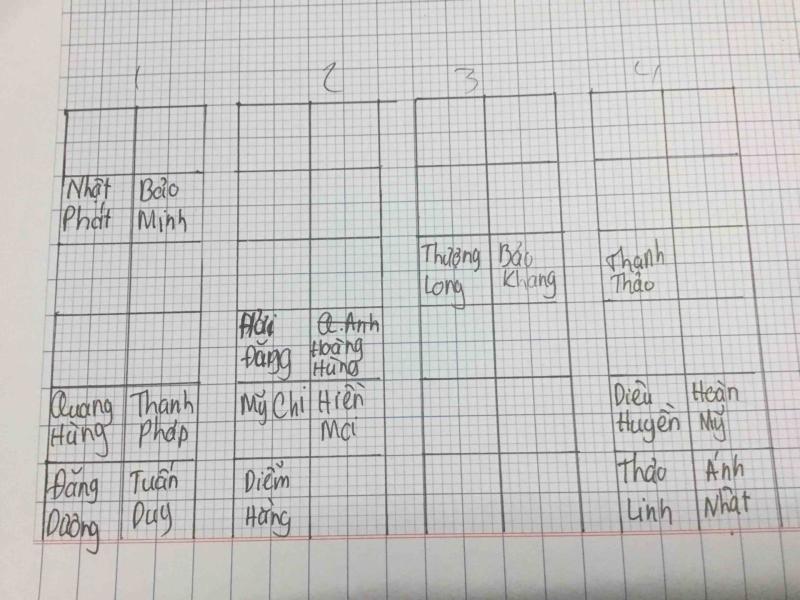 1 2 3 4
Nhật Bảo
Phát Minh
Thượng Bảo Thanh
Long Khang Thảo
Hải Q.Anh
Đăng Hoàng
Hùng
Quang Thanh Mỹ Chi Hiền Diệu Hoàn
Hùng Pháp Mai Huyền Mỹ
Đăng Tuấn Diễm Thảo Ánh
Dương Duy Hằng Linh Nhật